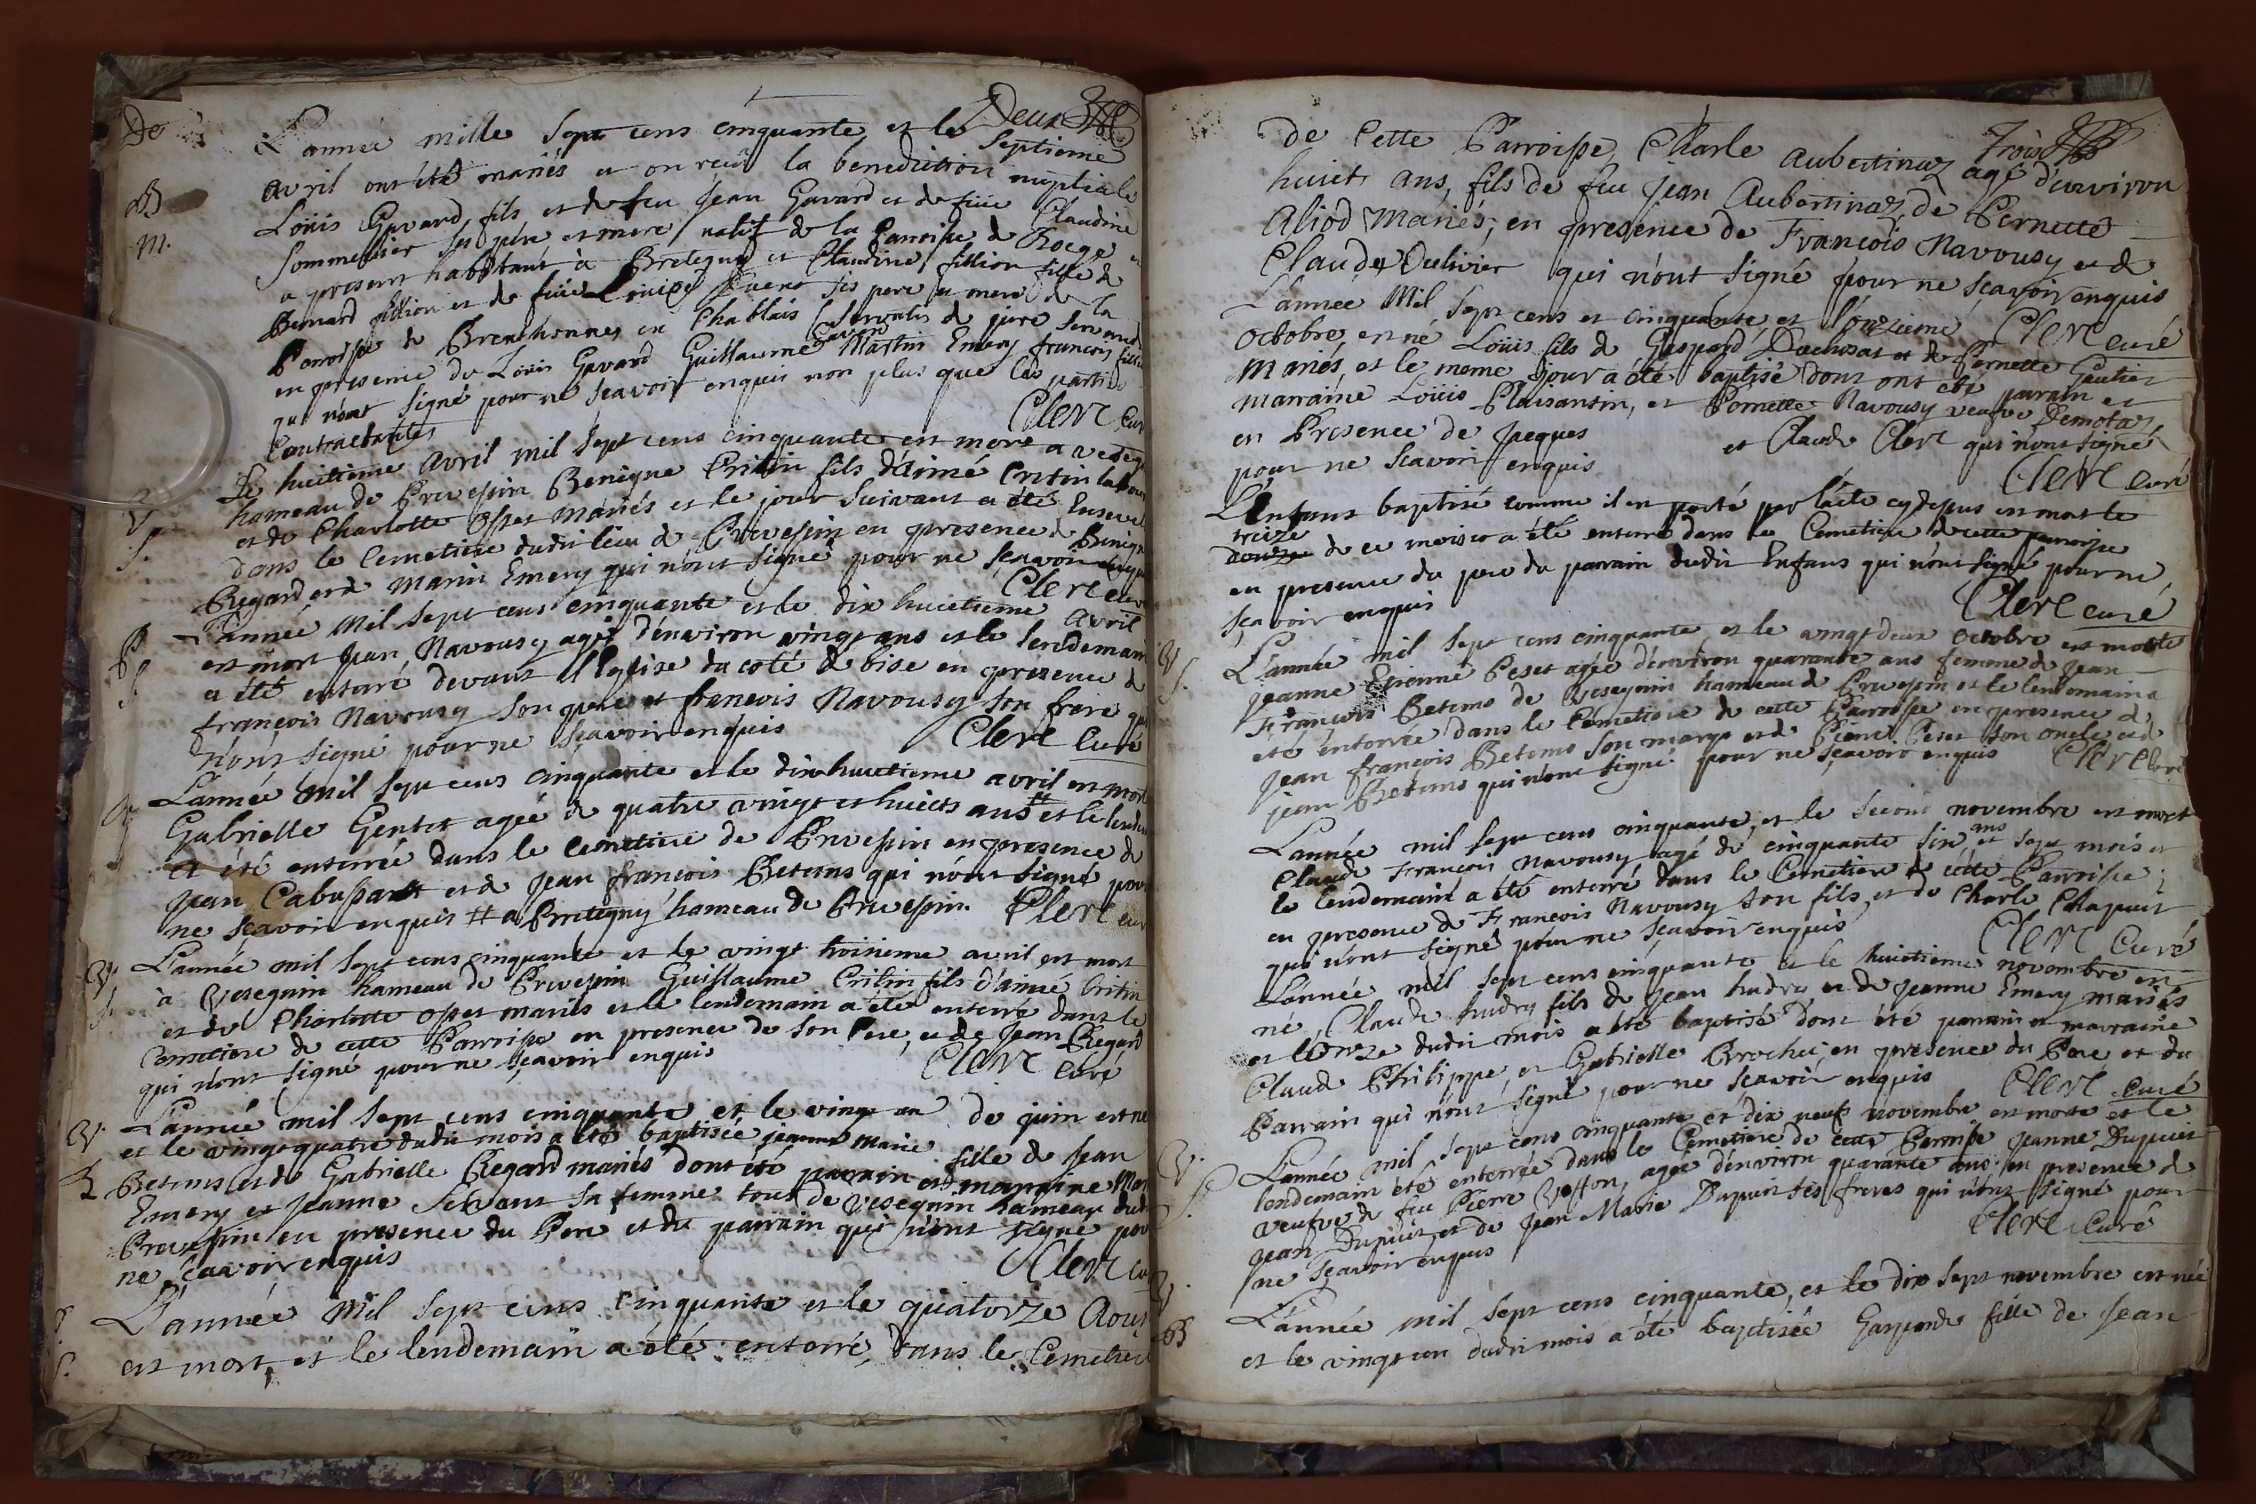 Deux
L'année mille sept cens cinquante et le Septieme
avril ont été mariés et on reçu la benediction nuptiale
Loüis Gavard, fils et de feu Jean Gavard et de füe Claudine
Sommeillier ses pére et mere natif de la Parroisse de Boege et
a present habitant à Bretegny et Claudine fillion fille de
Bernard fillion et de füe Loüise ses pere et mere de la
Parroisse de Brenthonne, en Chablais
en presence de Loüis Gavard Guillaume Martin Emery francois fillion
qui n'ont signé pour ne sçavoir enquis non plus que les parties
Contractantes Clerc Curé
Le huitieme avril mil sept cens cinquante est mort a
hameau de Prevessin Benigne Critin fils d'aimé Critin
et de Charlotte osset mariés et le jour suivant a été Enseveli
dans le Cemetiere dudit lieu de Prevessin en presence de Benigne
Regard et de Marin Emery qui n'ont signé pour ne sçavoir enquis
Clerc Curé
L'année mil sept cens cinquante et le dix huictieme avril
est mort Jean Navousy agé d'environ vingt ans et le lendemain
a été enterré devant l'Eglise du coté de bise en presence de
françois Navousy son pere et francois Navousy son frere qui
n'ont signé pour ne sçavoir enquis Clerc Curé
L'année mil sept cens cinquante et le dix huictieme avril est morte
Gabrielle Gentet agée de quatre vingt et huicts ans # et le lendemain
a été enterrée dans le cemetiere de Prevessin en presence de
Jean Cabussat et de Jean françois Betems qui n'ont signé pour
ne sçavoir enquis # a Bretegny hameau de Prevessin Clerc curé
L'année mil sept cens cinquante et le vingt troisieme avril est mort
à Vesegnin hameau de Prevessin Guillaume Critin fils d'aimé Critin
et de Charlotte osset mariés et le lendemain a été enterré dans le
Cemetiere de cette Parroisse en presence de son Pere, et de Jean Regard
qui n'ont signé pour ne sçavoir enquis Clerc Curé
L'année mil sept cens cinquante et le vingt un de juin est née
et le vingt quatre dudit mois a été baptisée jeanne Marie fille de Jean
Betems et de Gabrielle Regard mariés dont été parrain et marraine
Emery et Jeanne Servant sa femme tous de Vesegnin hameau dudit
Prevessin en presence du Pere et du parrain qui n'ont signé pour
ne sçavoir enquis Clerc curé
L'année mil sept cens cinquante et le quatorze Aoust
est mort, et le lendemain a été enterré, dans le Cemetiere
Trois
de Cette Parroisse, Charle Aubertinaz agé d'environ
huict ans, fils de feu Jean Aubertinaz, de Pernette
Aliod Mariés; en presence de François Navousy et de
Claude Dulivier qui n'ont signé pour ne sçavoir enquis
Clerc curé
L'année Mil sept cens et cinquante et l'onzieme
octobre, est né Loüis fils de Gaspard Duchosat et de Pernette Gautier
Mariés, et le meme jour a été baptisé dont ont été parrain et
marraine Loüis Plaisantin, et Pernette Navousy veufve Demotaz,
en Presence de Jacques et Claude Clerc qui n'ont signé
pour ne sçavoir enquis Clerc Curé
L'Enfant baptisé comme il en porté par l'acte cy dessus est mort le
treize
douze de ce mois et a été enterré dans le Cemetiere de cette parroisse
en presence du pere du parrain dudit Enfant qui n'ont signé pour ne
sçavoir enquis Clerc curé
L'année mil sept cens cinquante, et le vingt deux octobre est morte
jeanne Etienne Peset agée d'environ quarante ans femme de Jean
François Betems de Vesegnin hameau de Prevessin et le lendemain a
été enterrée dans le Cemetiere de cette Parroisse en presence de
Jean françois Betems son mary et de Pierre Peset son oncle et de
jean Betems qui n'ont signé pour ne sçavoir enquis Clerc Curé
L'année mil sept cens cinquante, et le second novembre est mort
Claude François Navousy agé de cinquante six ans et sept mois et
le lendemain a été enterré dans le Cemetiere de cette Parroisse;
en presence de François Navousy son fils, et de Charle Chapuis
qui n'ont signé pour ne sçavoir enquis Clerc Curé
L'année mil sept cens cinquante et le huictieme novembre est
né, Claude hudry fils de Jean hudry et de Jeanne Emery mariés
et l'onze dudit mois a été baptisé dont été parrain et marraine
Claude Philippe, et Gabrielle Brochu, en presence du Pere et du
Parrain qui n'ont signé pour ne scavoir enquis Clerc curé
L'année mil sept cens cinquante et dix neuf novembre est morte et le
lendemain été enterrée dans le Cemetiere de cette Parroisse Jeanne Dupuis
veufve de feu Pierre agée d'environ quarante ans en presence de
Jean Dupuis, et de Jean Marie Dupuis ses freres qui n'ont signé pour
ne sçavoir enquis Clerc Curé
L'année mil sept cens cinquante, et le dix sept novembre est née
et le vingt un dudit mois a été baptisée Gasparde fille de Jean